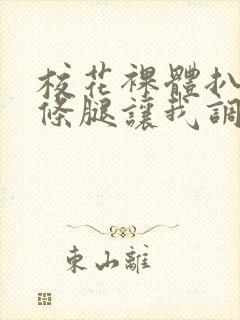 校花裸體扒
條腿讓我調
東山離